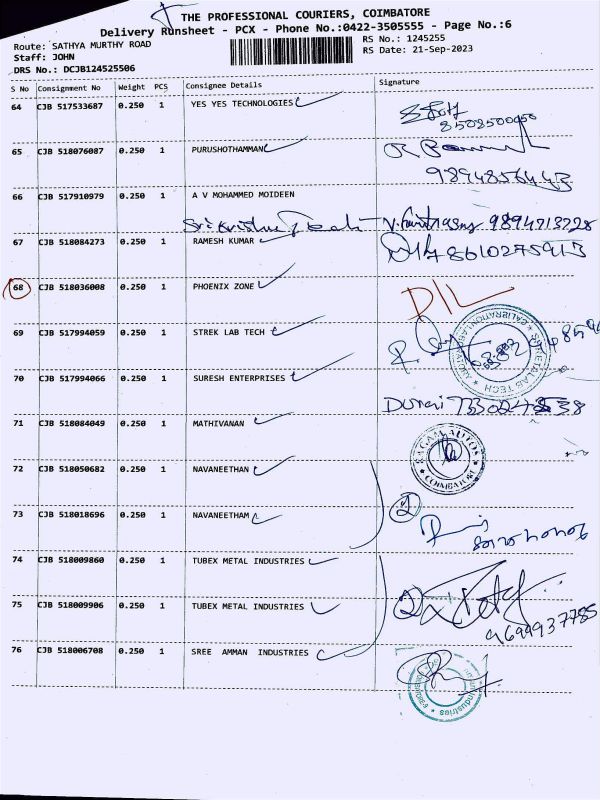 THE PROFESSIONAL COURIERS, COIMBATORE
Delivery Runsheet - PCX - Phone No.:0422-3505555 - Page No.:6
Route: SATHYA MURTHY ROAD
RS No.: 1245255
Staff: JOHN
RS Date: 21-Sep-2023
DRS No.: DCJB124525506
S No Consignment No Weight PCS Consignee Details Signature
64 CJB 517533687 0.250 1 YES YES TECHNOLOGIES
65 CJB 518076087 0.250 1 PURUSHOTHAMMAN
9894856443
66 CJB 517910979 0.250 1 A V MOHAMMED MOIDEEN
9894713228
67 CJB 518084273 0.250 1 RAMESH KUMAR
8610275913
68 CJB 518036008 0.250 1 PHOENIX ZONE
D/L
69 CJB 517994059 0.250 1 STREK LAB TECH
70 CJB 517994066 0.250 1 SURESH ENTERPRISES
71 CJB 518084049 0.250 1 MATHIVANAN
COIMBATORE
72 CJB 518050682 0.250 1 NAVANEETHAN
2
73 CJB 518018696 0.250 1 NAVANEETHAM
74 CJB 518009860 0.250 1 TUBEX METAL INDUSTRIES
75 CJB 518009906 0.250 1 TUBEX METAL INDUSTRIES
2
9699937785
76 CJB 518006708 0.250 1 SREE AMMAN INDUSTRIES